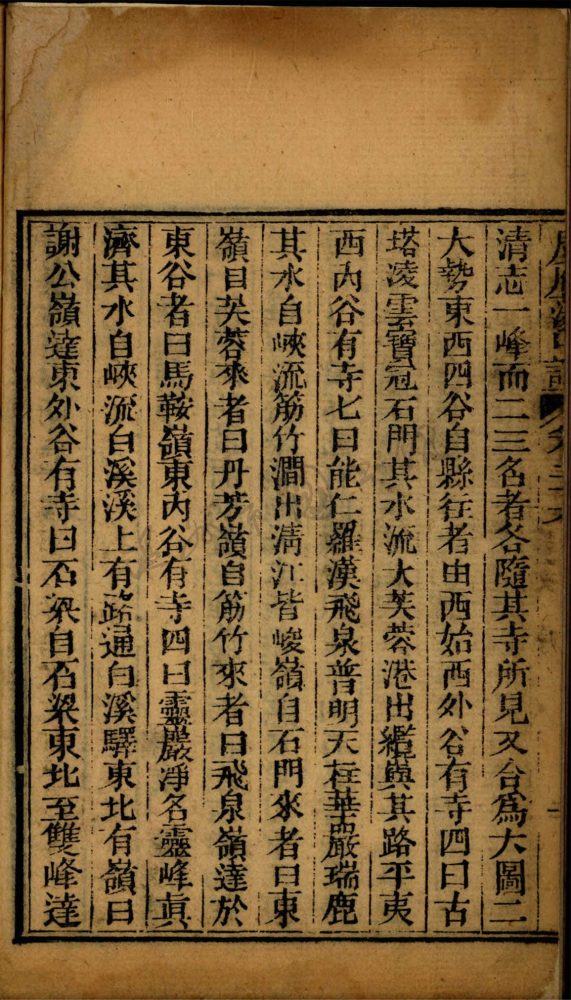 清志一峰而二三名者各隨其寺所見又合爲大圖二
大勢東西四谷自縣往者由西始西外谷有寺四曰古
塔凌雲寶冠石門其水流大芙蓉港出纜輿其路平夷
西内谷有寺七曰能仁羅漢飛泉普明天柱華嚴瑞鹿
其水自峽流筋竹澗出清江皆峻嶺自石門來者曰東
嶺自芙蓉來者曰丹芳嶺自筋竹來者曰飛泉嶺達於
東谷者曰馬鞍嶺東内谷有寺四曰靈巖淨名靈峰眞
濟其水自峽流白溪溪上有路通白溪驛東北有嶺曰
謝公嶺達東外谷有寺曰石梁自石梁東北至雙峰達